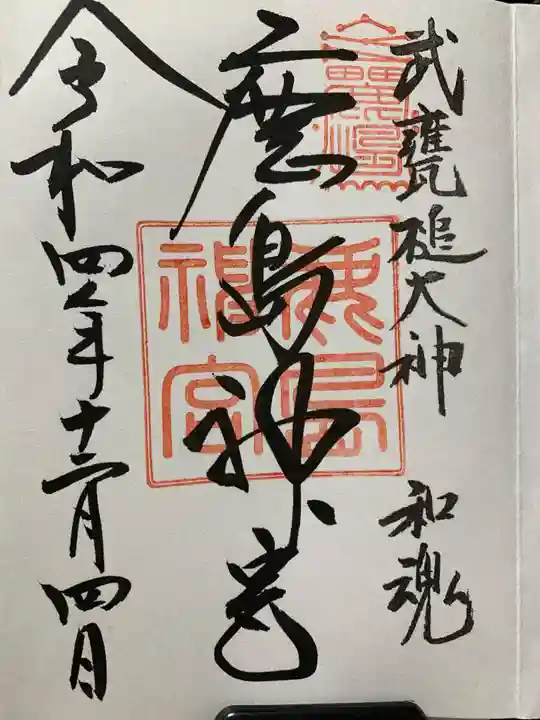 武甕槌大神 和魂
鹿島神宮
鹿島
神宮
令和四年十二月四日